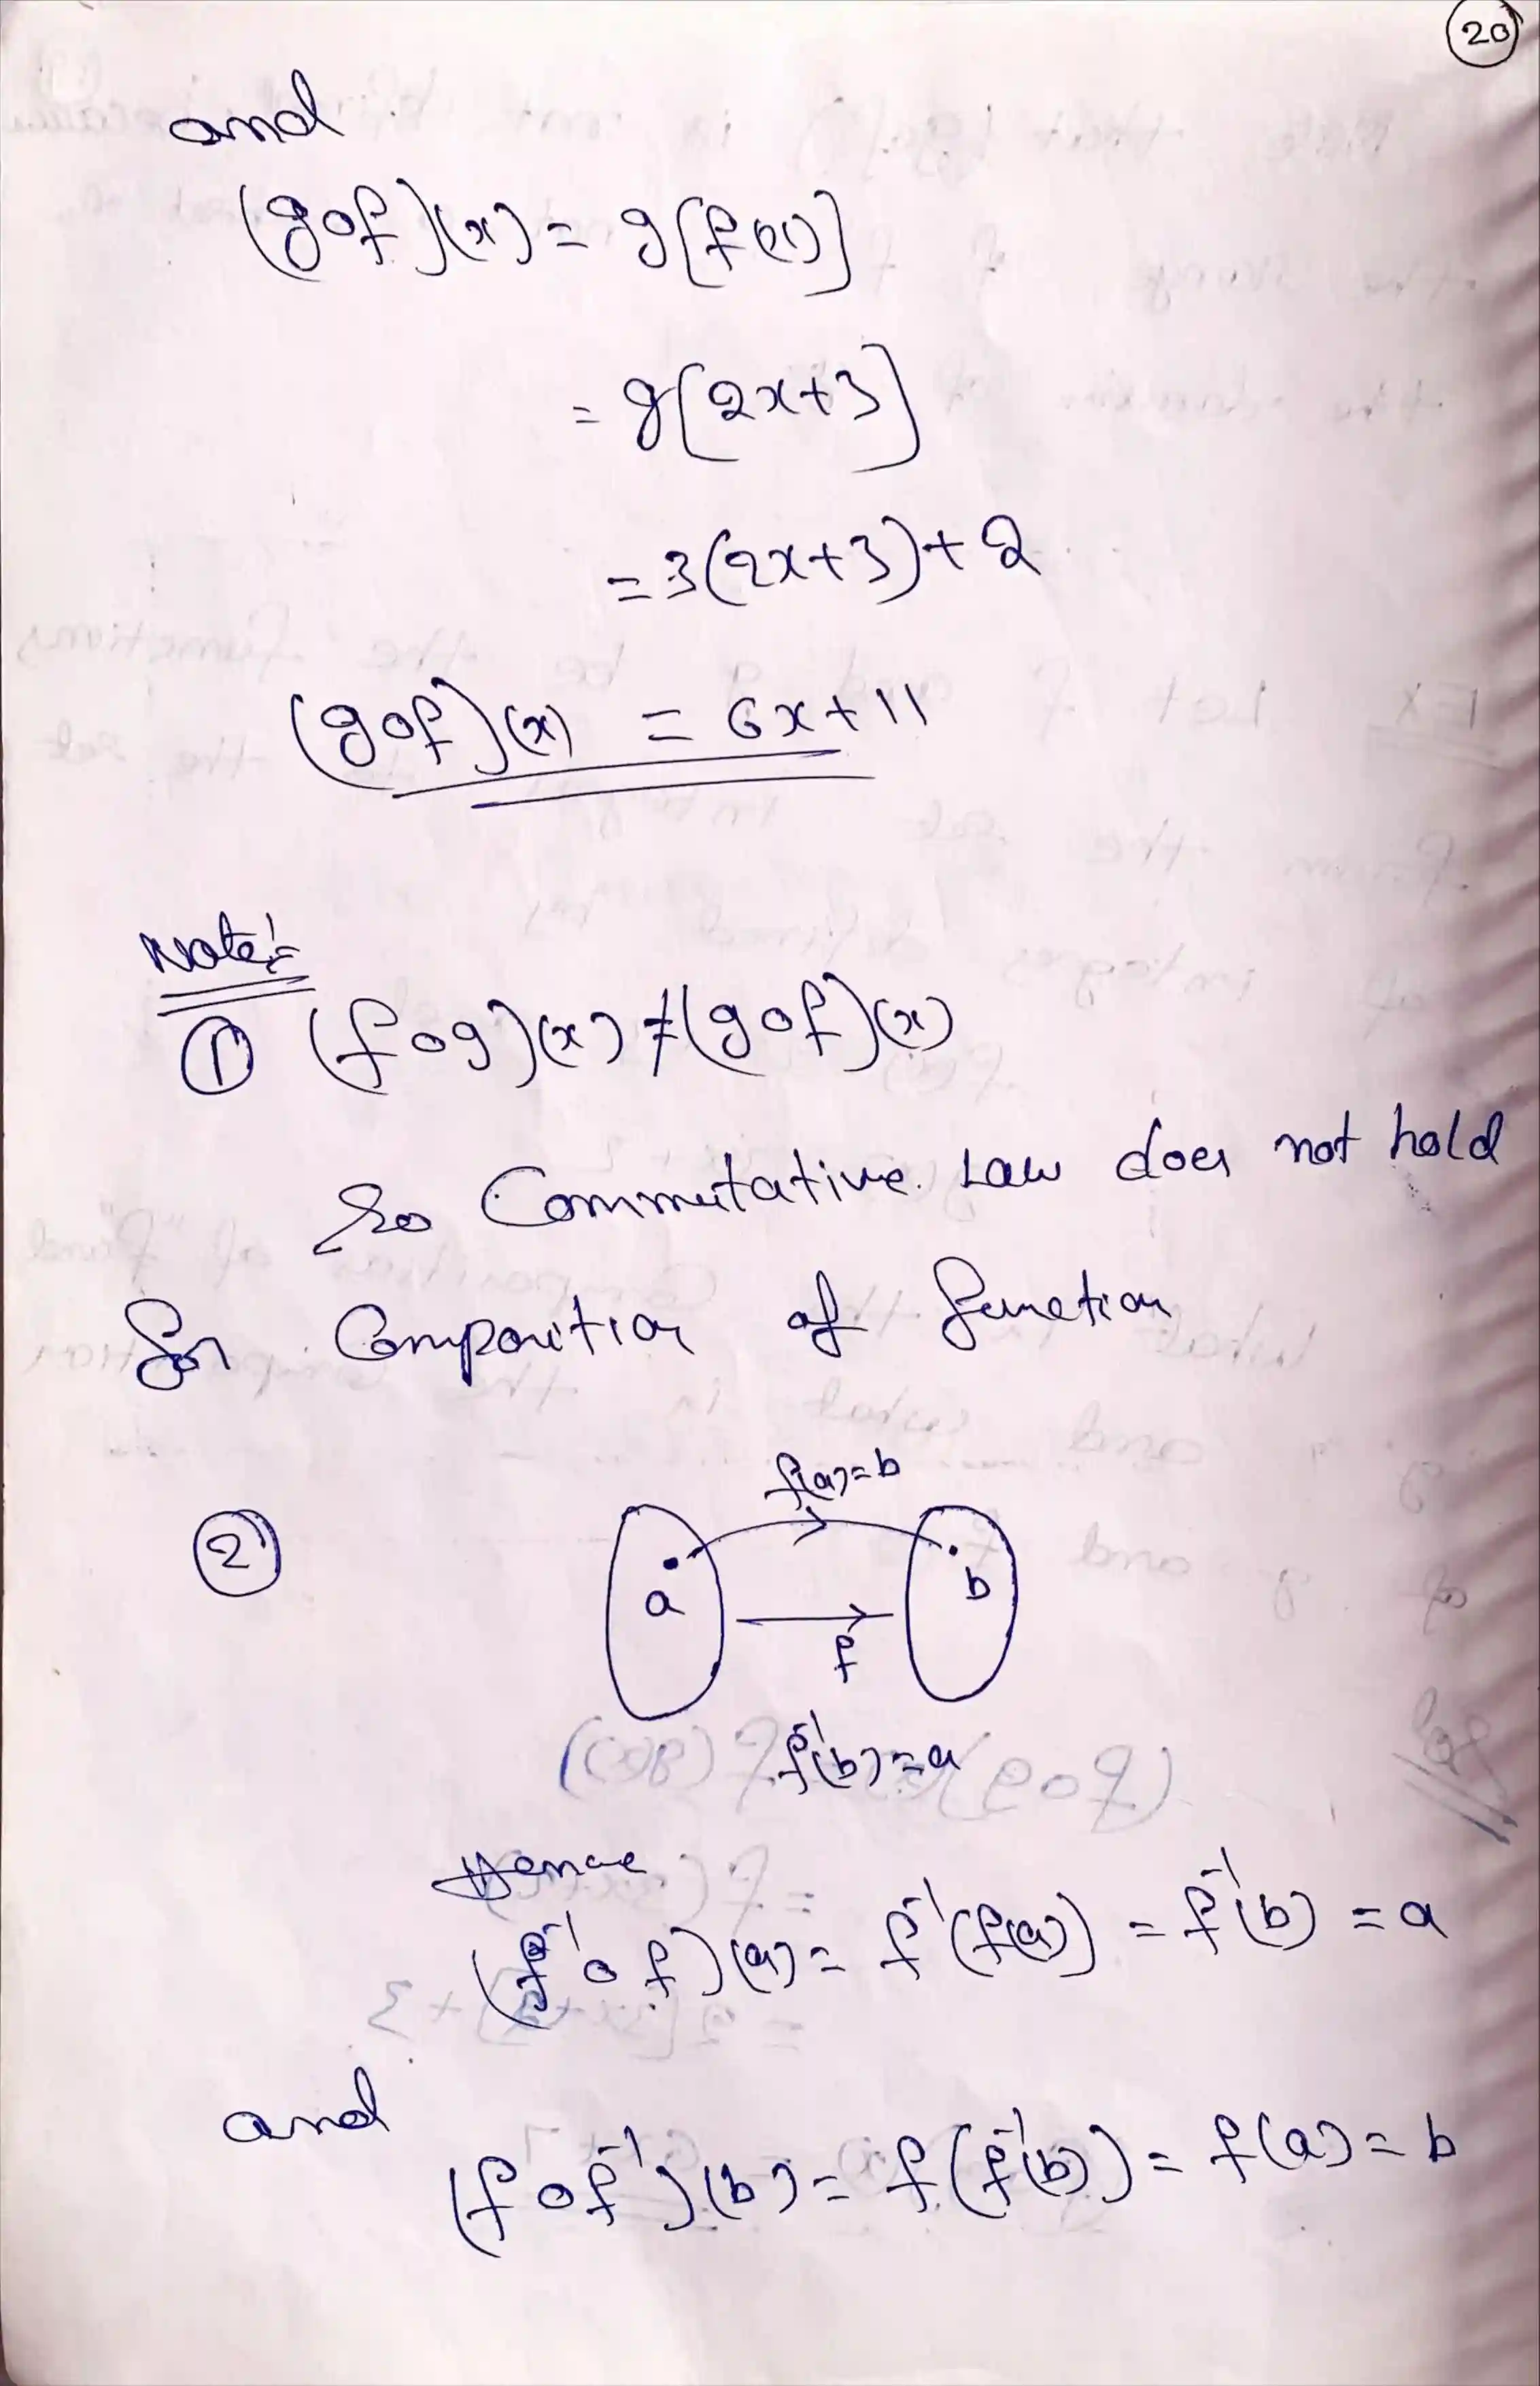 20
and
(gof)(x) = g[f(x)]
= g[2x+3]
= 3(2x+3)+2
(gof)(x) = 6x+11
Note:-
① (fog)(x) ≠ (gof)(x)
So Commutative Law does not hold
for Composition of function
②
f(a)=b
a
b
f
f⁻¹(b)=a
Hence
(f⁻¹of)(a) = f⁻¹(f(a)) = f⁻¹(b) = a
and
(fof⁻¹)(b) = f(f⁻¹(b)) = f(a) = b